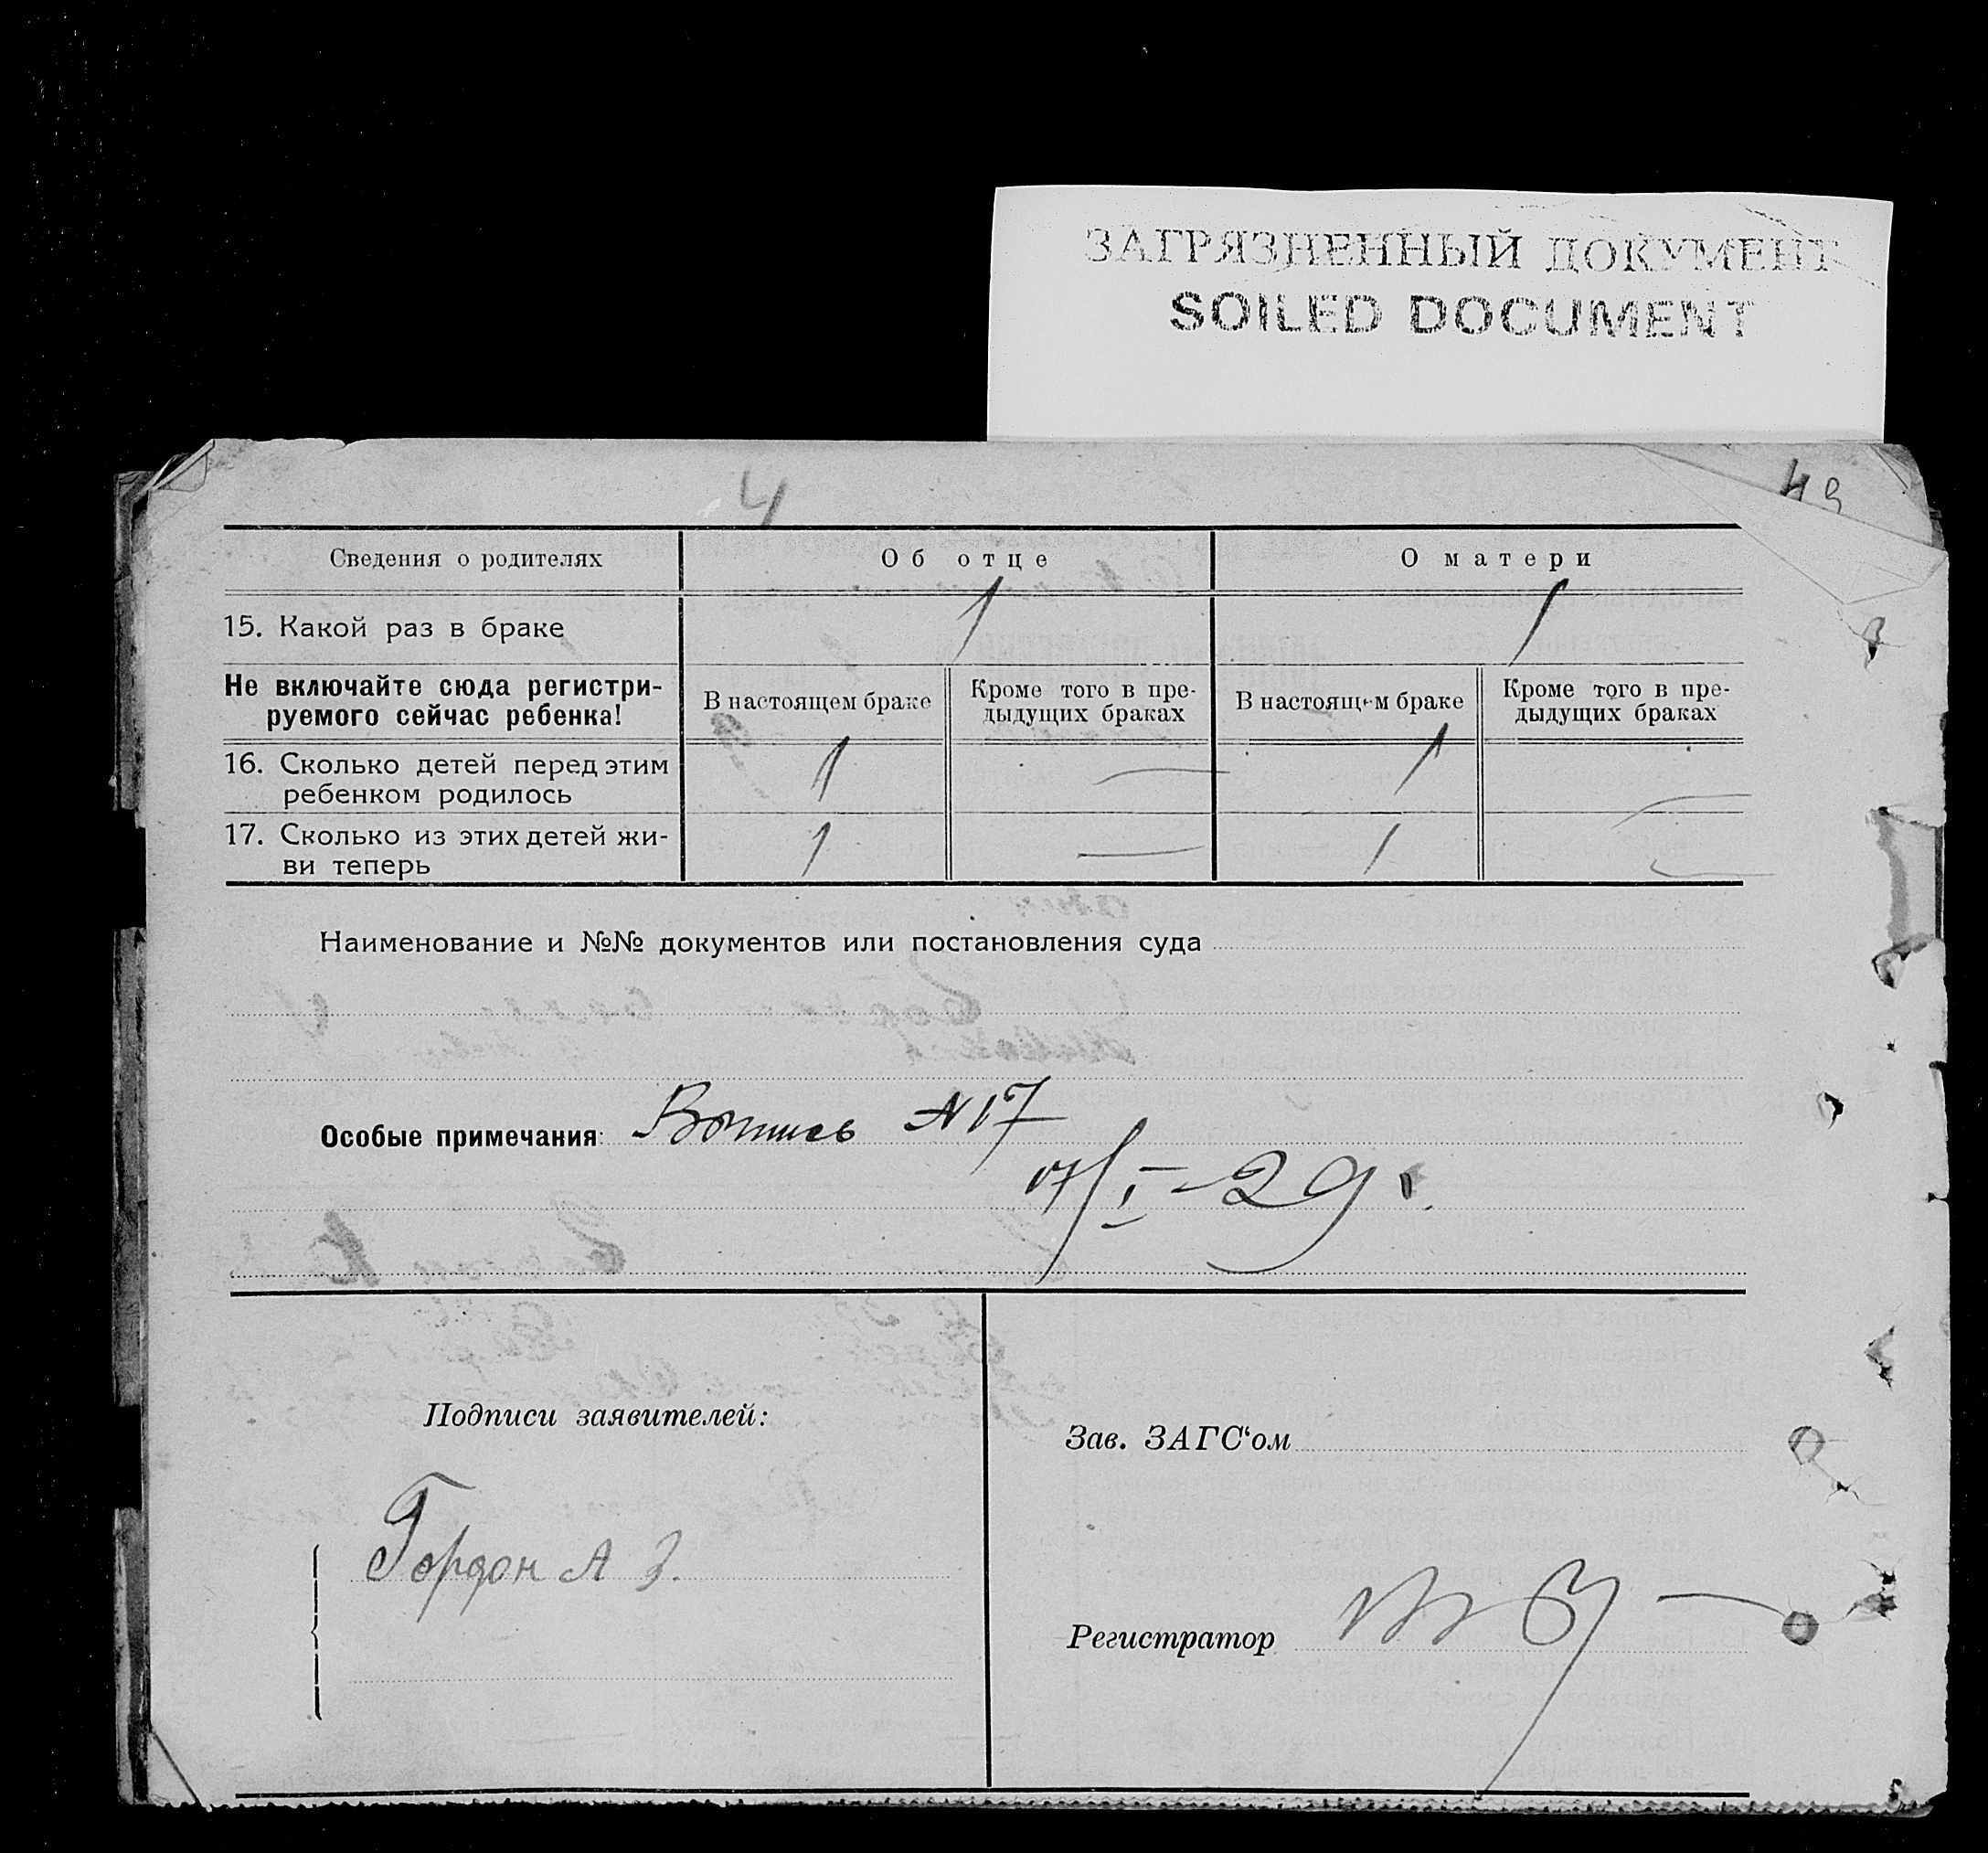 ЗАГРЯЗНЕННЫЙ ДОКУМЕНТ
SOILED DOCUMENT
4
49
Сведения о родителях Об отце О матери
15. Какой раз в браке 1 1
Не включайте сюда регистри-
руемого сейчас ребенка!
В настоящем браке
Кроме того в пре-
дыдущих браках
В настоящем браке
Кроме того в пре-
дыдущих браках
16. Сколько детей перед этим
ребенком родилось
1 — 1 —
17. Сколько из этих детей жи-
ви теперь
1 — 1 —
Наименование и №№ документов или постановления суда
Особые примечания: Выпись №17
17/I-29
Подписи заявителей:
Гордон А З.
Зав. ЗАГС‘ом
Регистратор